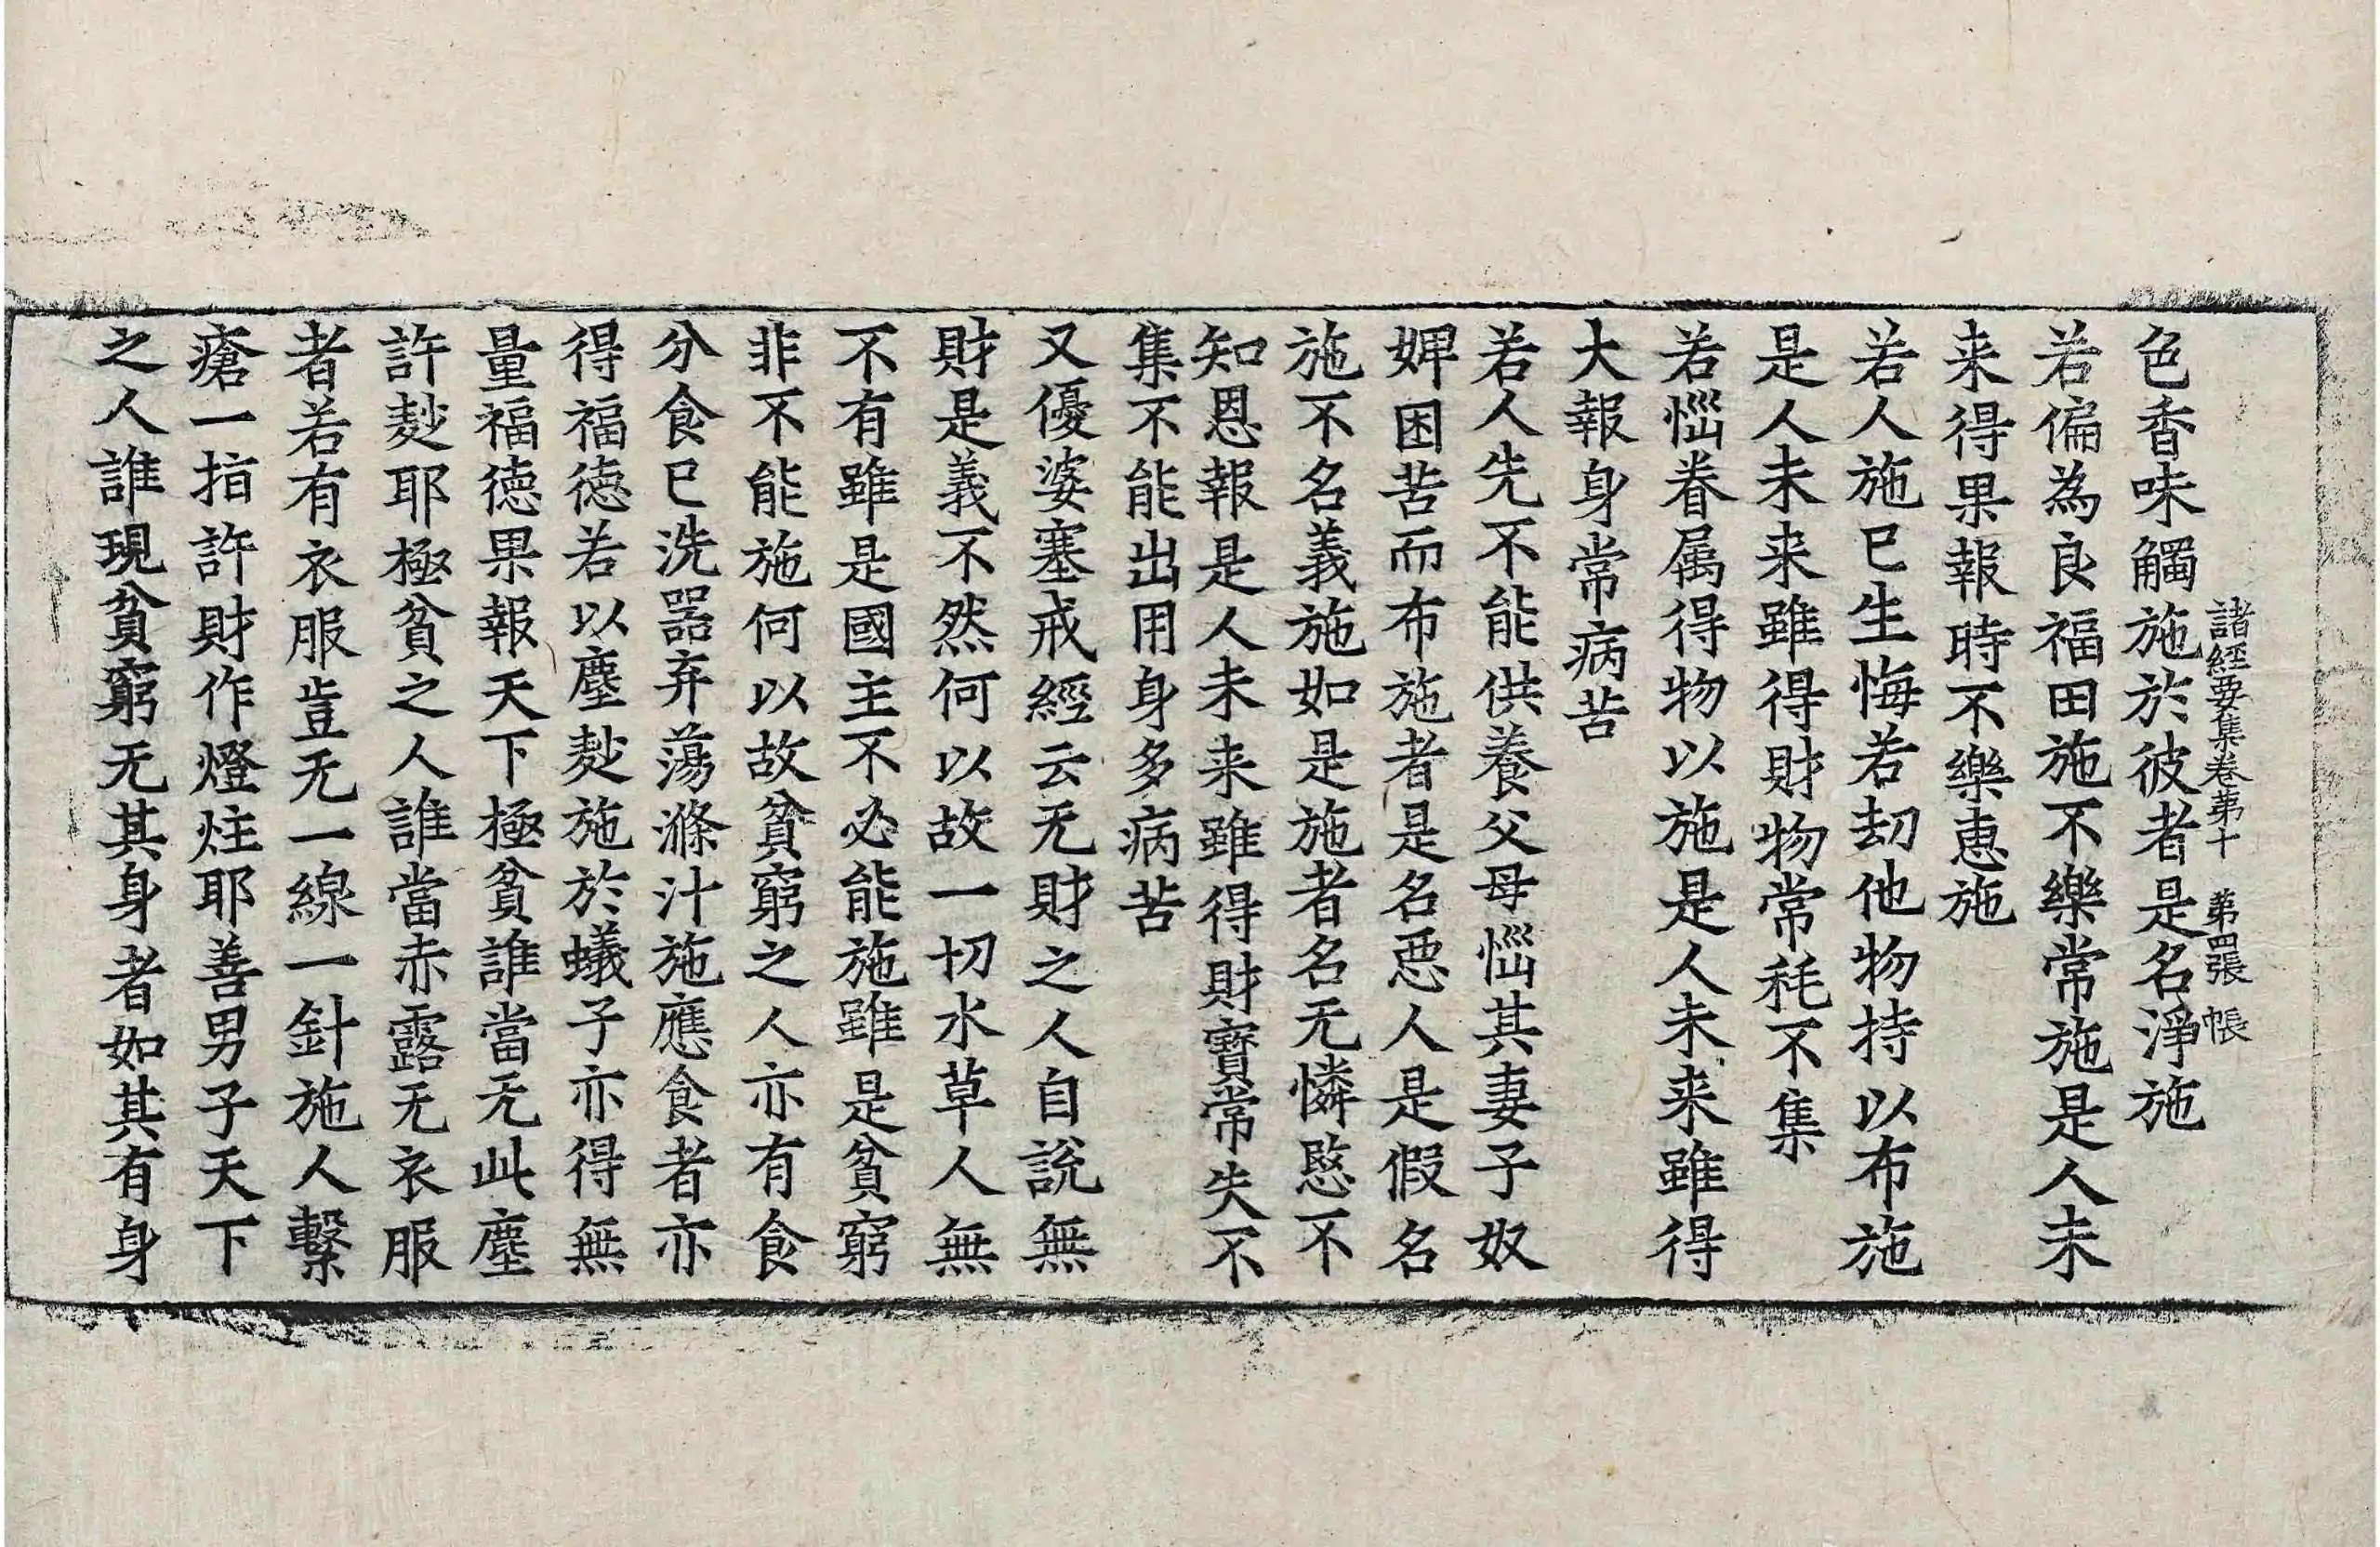 諸經要集卷第十　第四張　帳
色香味觸施於彼者是名淨施
若偏為良福田施不樂常施是人未
来得果報時不樂惠施
若人施已生悔若刼他物持以布施
是人未来雖得財物常耗不集
若惱眷属得物以施是人未来雖得
大報身常病苦
若人先不能供養父母惱其妻子奴
婢困苦而布施者是名悪人是假名
施不名義施如是施者名无憐愍不
知恩報是人未来雖得財寳常失不
集不能出用身多病苦
又優婆塞戒經云无財之人自說無
財是義不然何以故一切水草人無
不有雖是國主不必能施雖是貧窮
非不能施何以故貧窮之人亦有食
分食已洗器弃蕩滌汁施應食者亦
得福徳若以塵麨施於蟻子亦得無
量福徳果報天下極貧誰當无此塵
許麨耶極貧之人誰當赤露无衣服
者若有衣服豈无一線一針施人繫
瘡一指許財作燈炷耶善男子天下
之人誰現貧窮无其身者如其有身